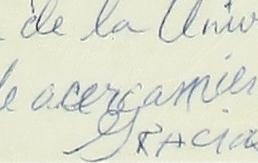 de la Univ
de acercamien
Gracias